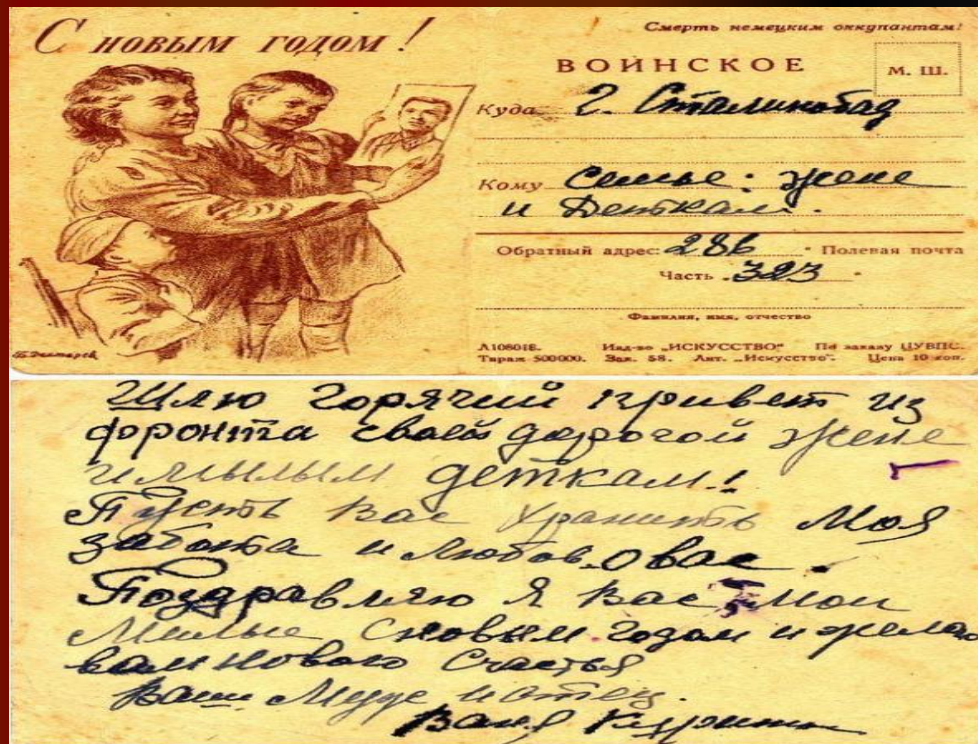 С НОВЫМ ГОДОМ!
Смерть немецким оккупантам!
ВОИНСКОЕ
М. Ш.
Куда г. Сталинобад
Кому Семье: жене
и Деткам.
Обратный адрес: 286 Полевая почта
Часть 323
Фамилия, имя, отчество
Изд-во „ИСКУССТВО“ По заказу ЦУВПС.
Тираж 500000. Зак. 58. Лит. „Искусство“. Цена 10 коп.
Шлю горячий привет из
фронта своей дорогой жене
и милым деткам!
Пусть Вас хранить Моя
забота и любов. о вас.
Поздравляю я Вас Мои
Милые с новым годом и желаю
вам нового счастья
Ваш Муж и отец.
Ваня